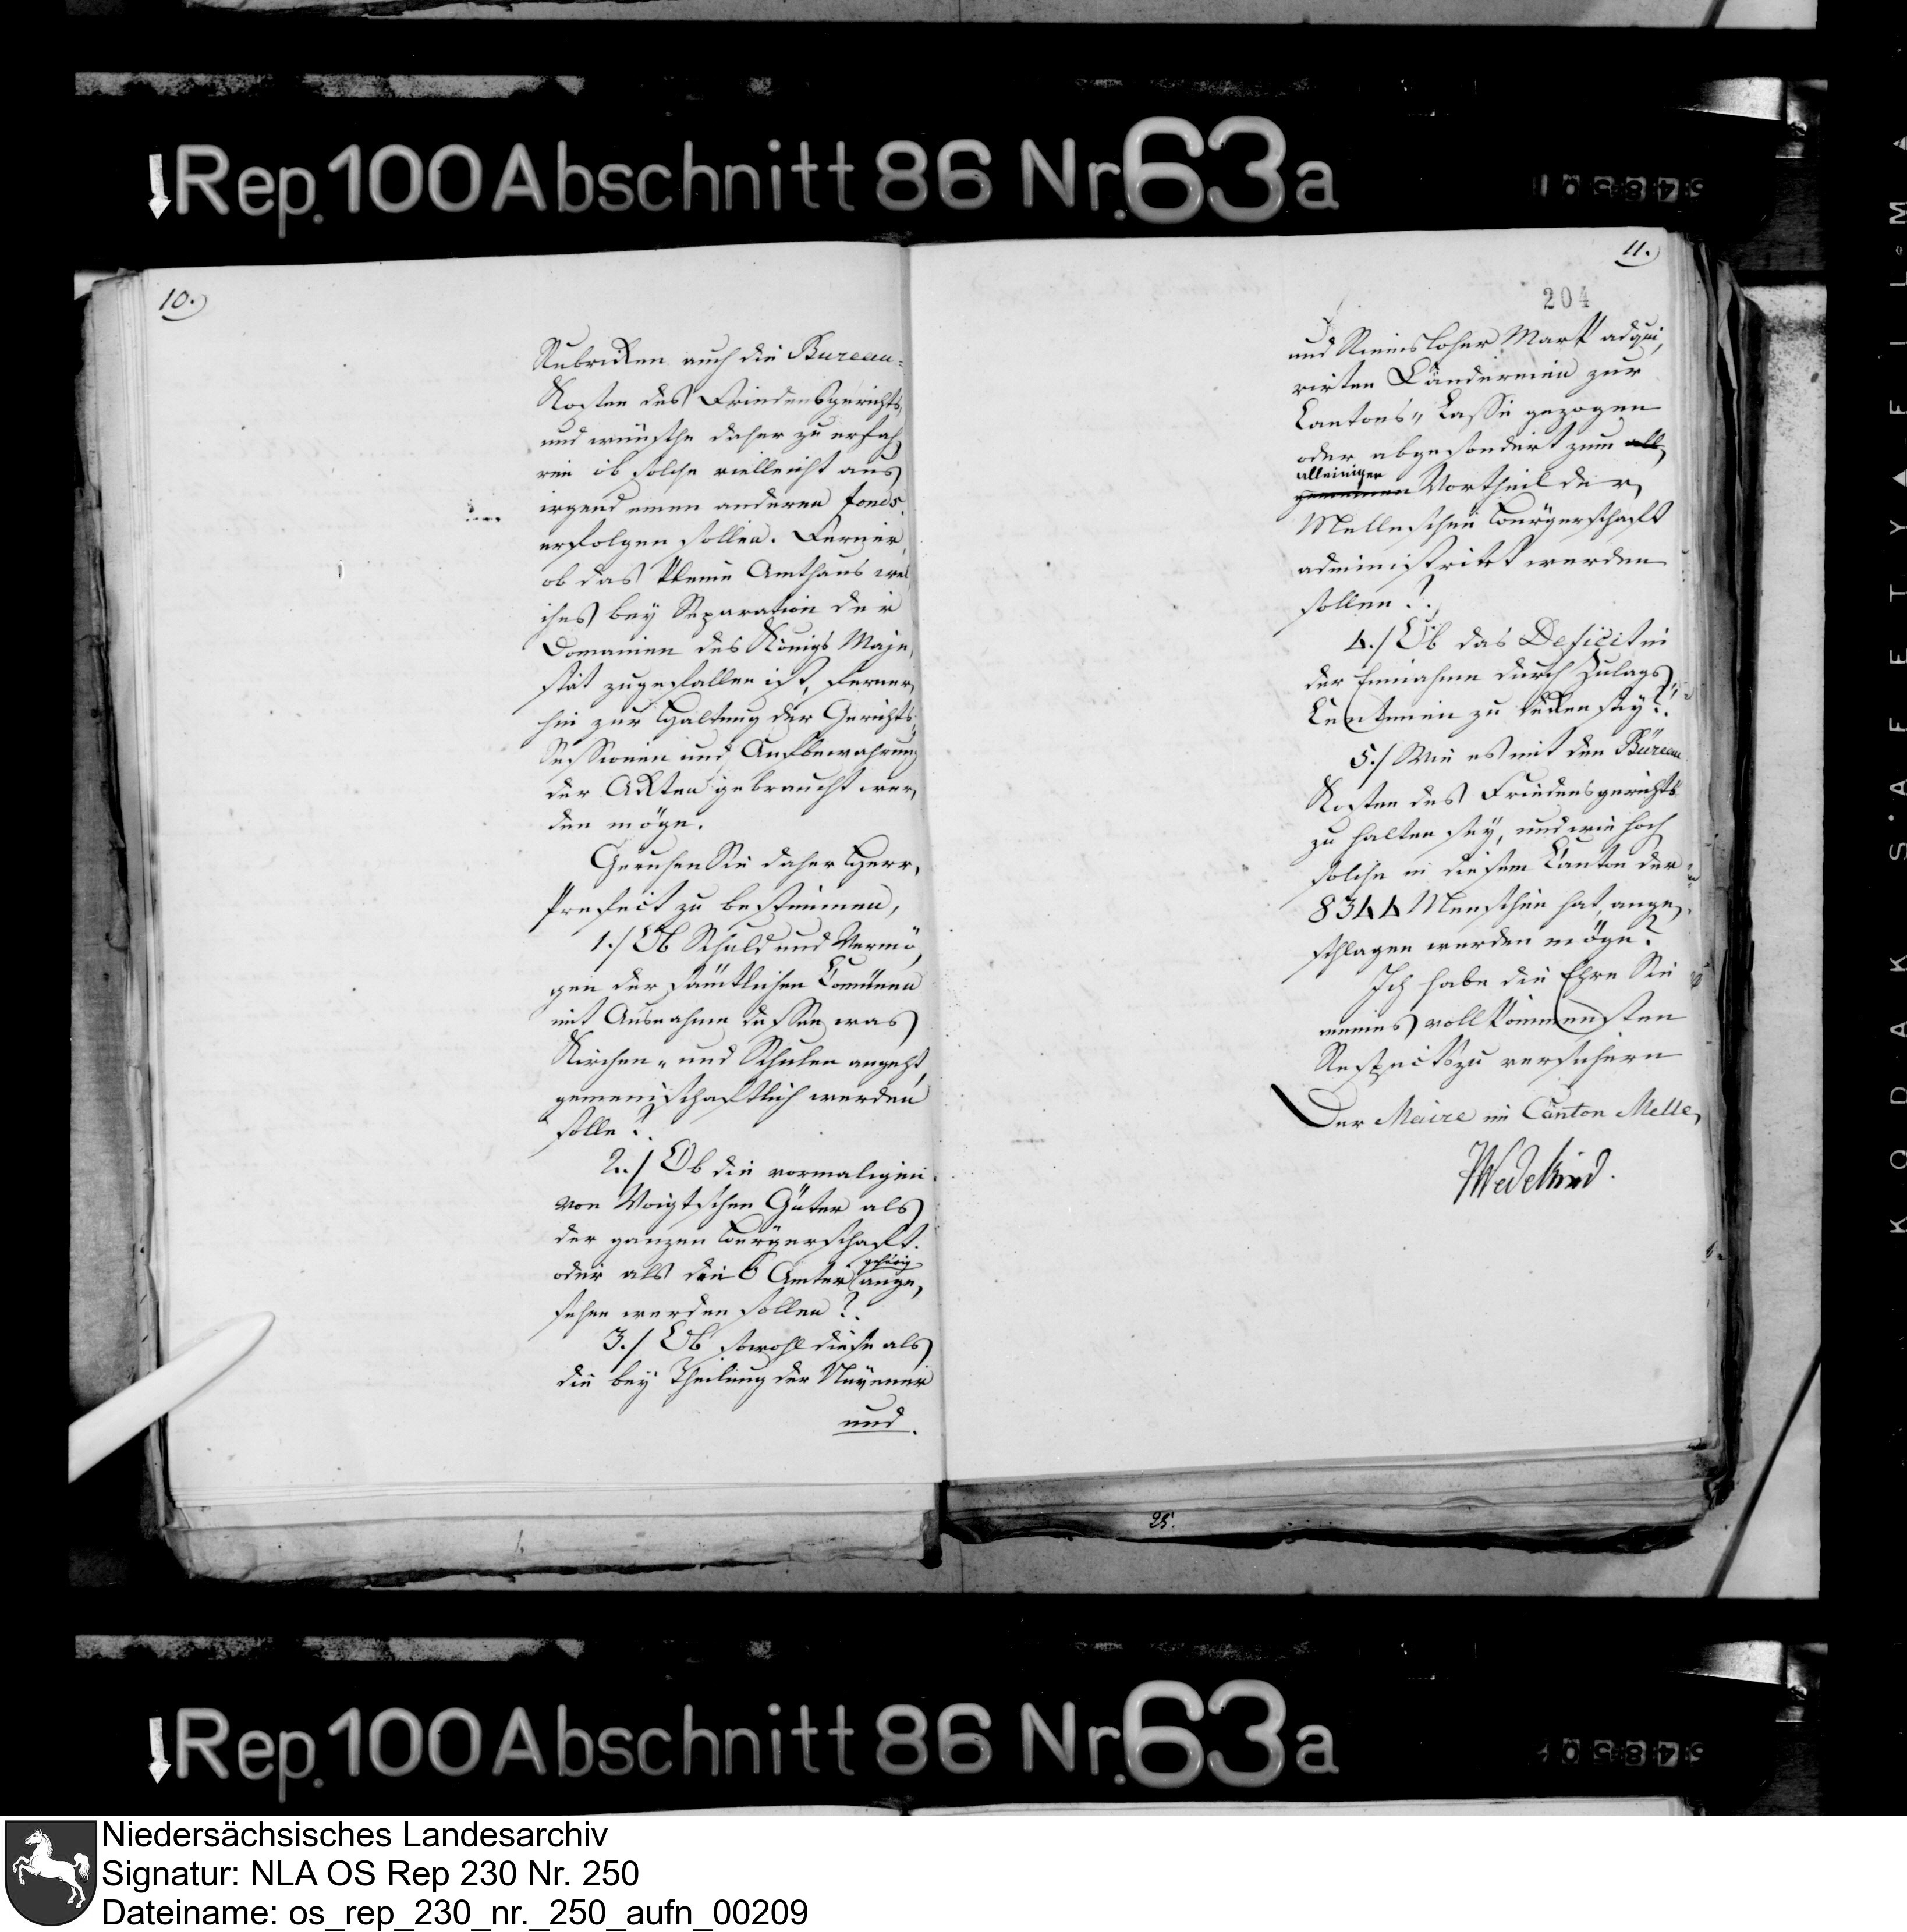 Rep. 100 Abschnitt 86 Nr. 63a
10.)
Rubricken auch die Bureau-
Kosten des Friedensgerichts,
und wünsche daher zu erfah,
ren ob solche vielleicht aus
irgend einen anderen fonds.
erfolgen sollen. Ferner,
ob das kleine Amthaus wel,
ches bey Separation der
Domainen des Königs Maje,
stät zugefallen ist, ferner,
hin zur Haltung der Gerichts,
Sessionen und Aufbewahrung
der Ackten gebraucht wer,
den möge.
Geruhen Sie daher Herr,
Prefect zu bestimmen,
1./ Ob Schuld und Vermö,
gen der sämtlichen Comünen
mit Ausnahme dessen was
Kirchen- und Schulen angeht,
gemeinschaftlich werden
solle?.
2./ Ob die vormaligen
von Voigtschen Güter als
der ganzen Bürgerschaft.
gehörig
oder als den 6 Amter ange,
sehen werden sollen?.
3./ Ob sowohl diese als
die bey Theilung der Nüvener
und.
11.)
204
und Riemsloher Mark adqui,
rirten Ländereien zur
Cantons,, Casse gezogen
oder abgesondert zum all,
alleinigen
gemeinen Vortheil der,
Melleschen Bürgerschaft
administrirt werden
sollen?.
4./ Ob das Deficit in
der Einnahme durch Zulags,
Centimen zu decken sey?.
5./ Wie es mit den Büreau
Kosten des Friedensgerichts
zu halten sey, und wie hoch
solche in diesem Canton der
8344 Menschen hat, ange,
schlagen werden möge?
Ich habe die Ehre Sie
meines vollkommensten
Respects zu versichern
Der Maire im Canton Melle,
Wedekind.
25.
Rep. 100 Abschnitt 86 Nr. 63a
KODAK SAFETY FILM
Niedersächsisches Landesarchiv
Signatur: NLA OS Rep 230 Nr. 250
Dateiname: os_rep_230_nr._250_aufn_00209